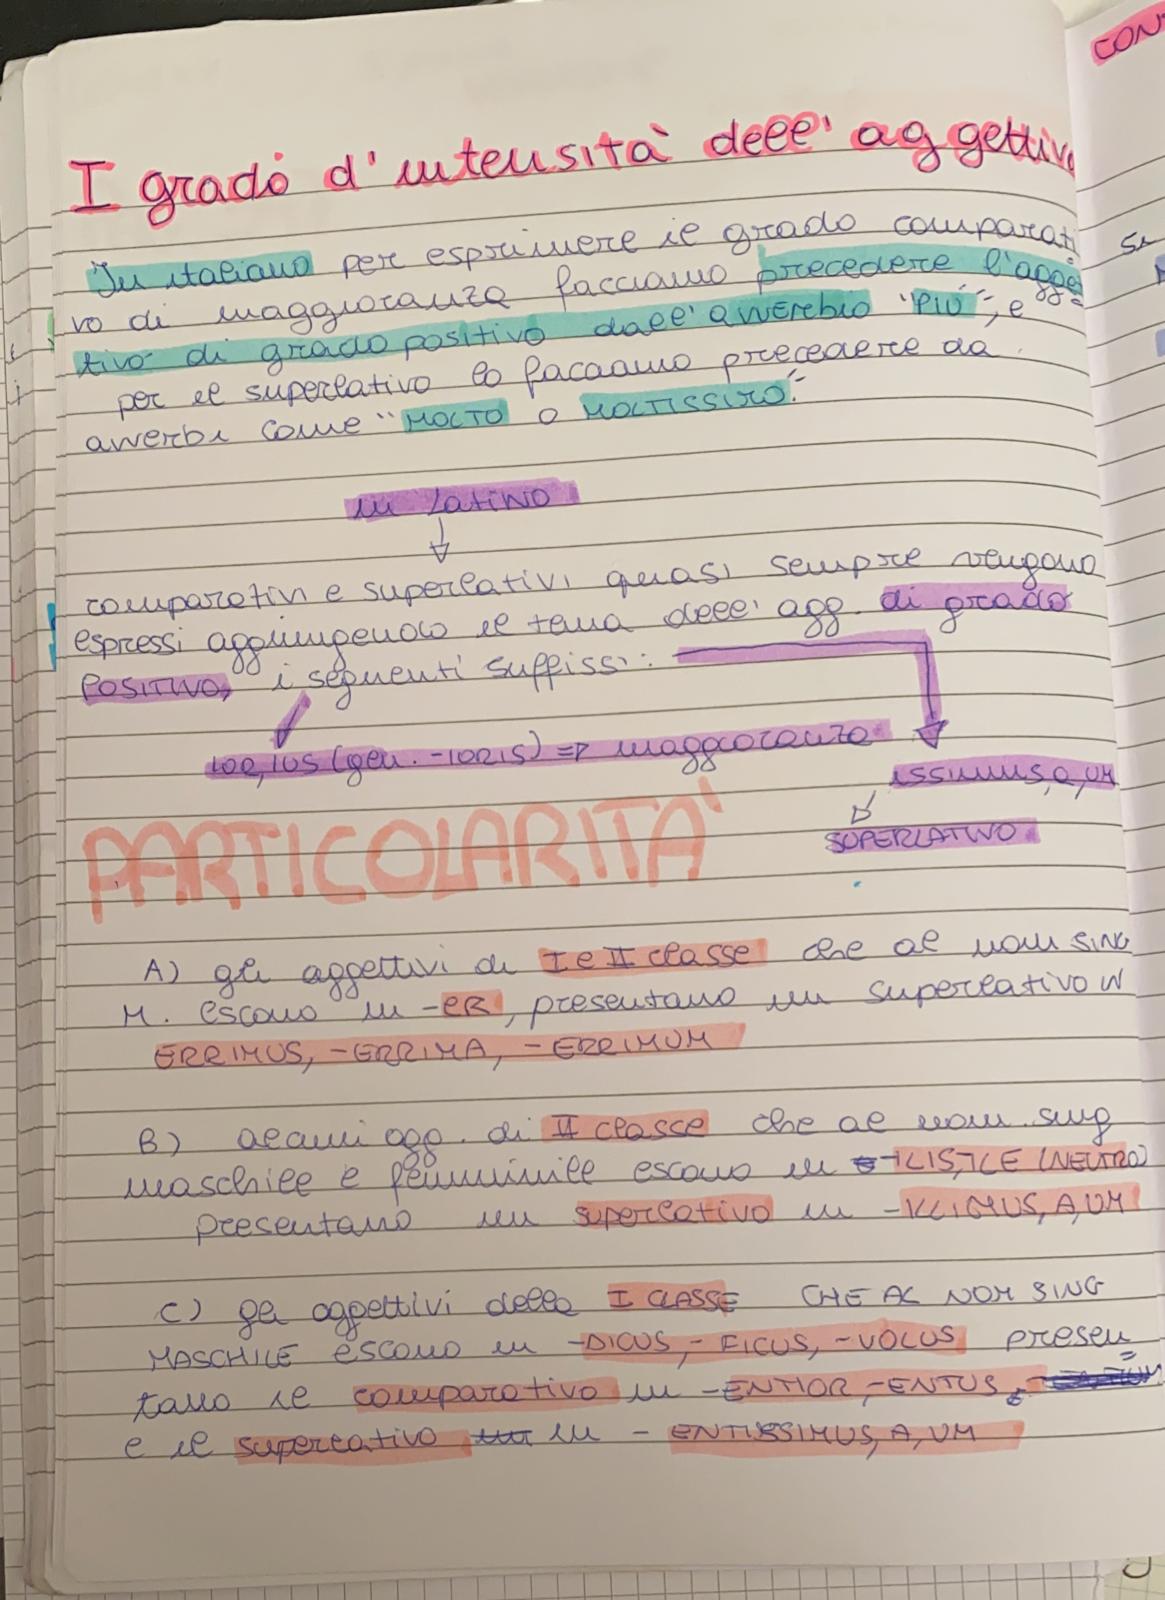 I grado d'intensità dell'aggettivo
In italiano per esprimere il grado comparati
vo di maggioranza facciamo precedere l'agget
tivo di grado positivo dall'avverbio "PIÙ", e
per il superlativo lo facciamo precedere da
avverbi come "MOLTO O MOLTISSIMO."
in Latino
comparativi e superlativi quasi sempre vengono
espressi aggiungendo il tema dell'agg. di grado
POSITIVO, i seguenti suffissi:
IOR, IUS (gen. -IORIS) => maggioranza
ISSIMUS, a, UM
SUPERLATIVO
PARTICOLARITA'
A) gli aggettivi di I e II classe che al nom SING
M. escono in -ER, presentano un superlativo IN
ERRIMUS, -ERRIMA, -ERRIMUM
B) alcuni agg. di II classe che al nom. sing
maschile e femminile escono in -ILIS, ILE (NEUTRO)
presentano un superlativo in -ILLIMUS, A, UM
C) gli aggettivi della I CLASSE CHE AL NOM SING
MASCHILE escono in -DICUS, - FICUS, -VOLUS presen
tano il comparativo in -ENTIOR, -ENTUS,
e il superlativo in - ENTISSIMUS, A, UM
CON
Si